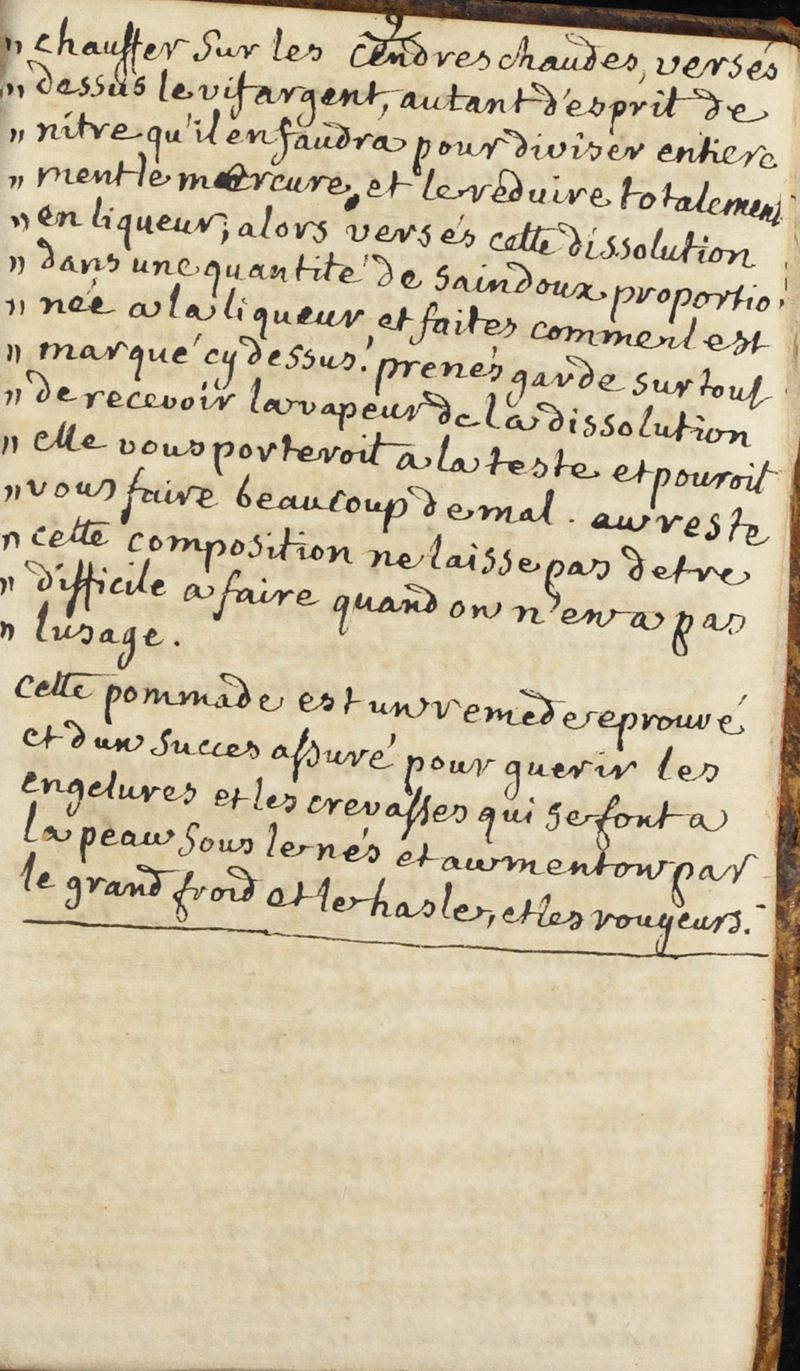 9
" chauffer sur les cendres chaudes, versés
" dessus le vif argent, autant d'esprit de
" nitre qu'il en faudra pour diviser entiere
" ment le mercure, et le reduire totalement
" en liqueur; alors versés cette dissolution
" dans une quantité de saindoux proportio
" née a la liqueur et faites comment est
" marqué cy dessus. prenés garde sur tout
" de recevoir la vapeur de la dissolution
" elle vous porteroit a la teste et pouroit
" vous faire beaucoup de mal. au reste
" cette composition ne laisse pas detre
" difficile a faire quand on n'en a pas
" lusage.
cette pommade est un remede eprouvé
et dun succes assuré pour guerir les
engelures et les crevasses qui se font a
la peau sous le nés et au menton par
le grand froid et le hasle, et les rougeurs.